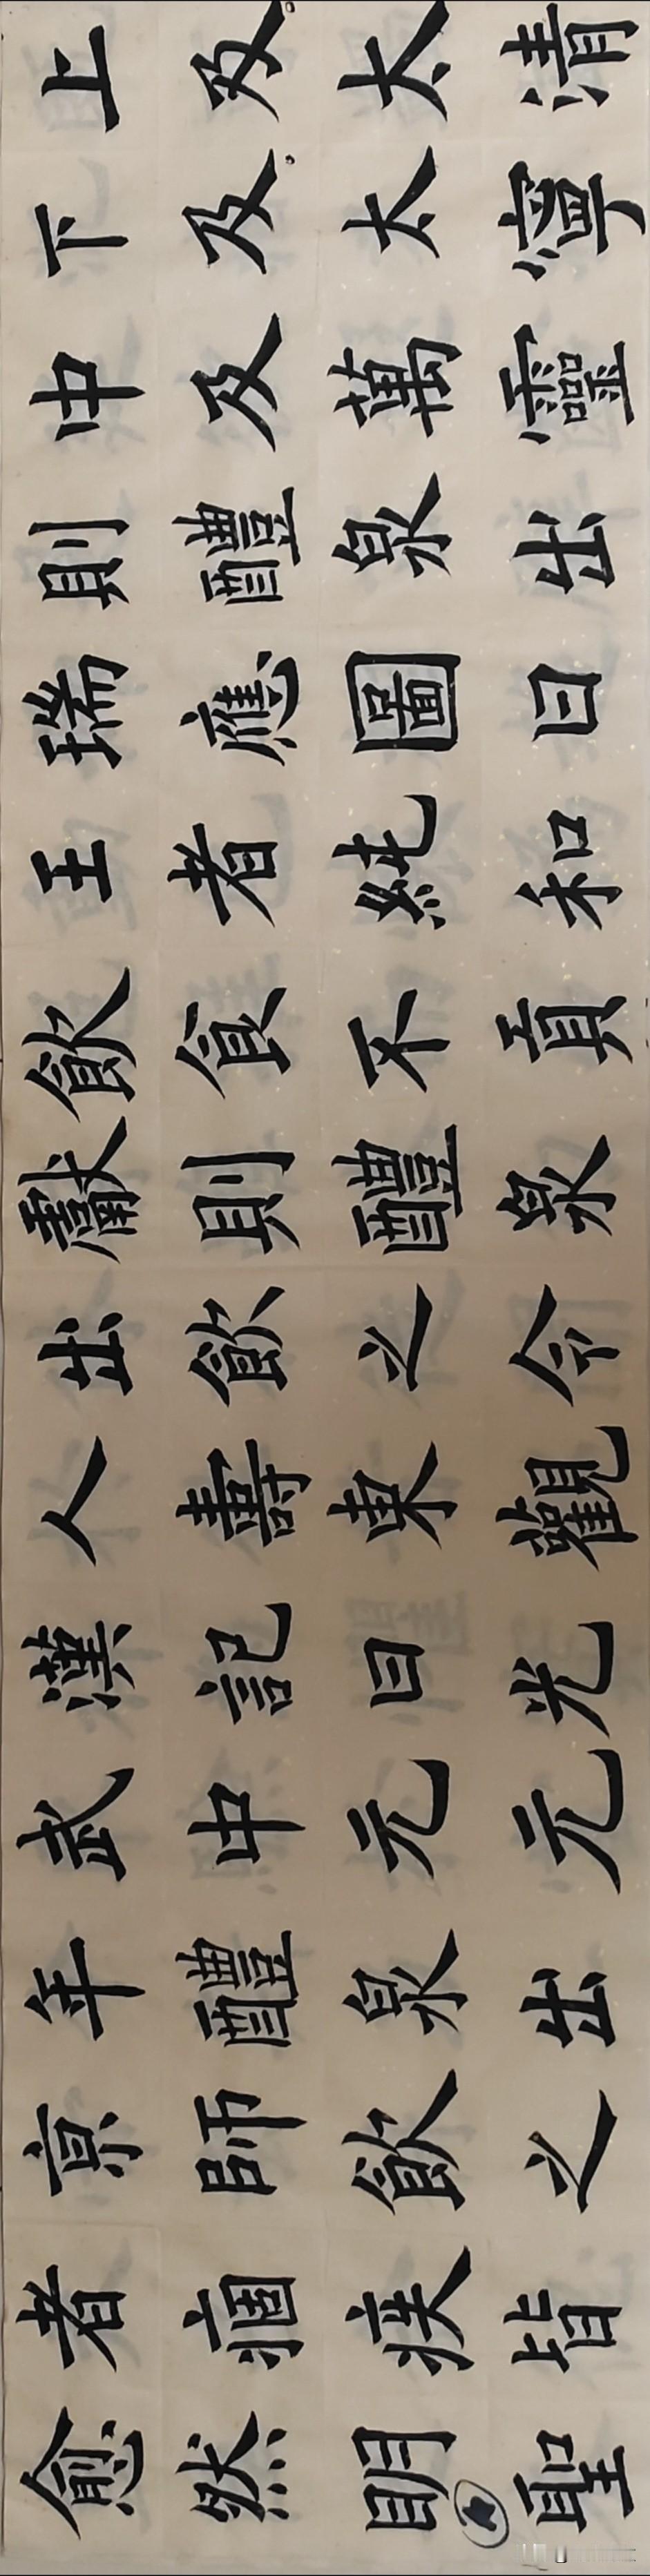 上及太清
下及太寧
中及萬靈
則醴泉出
瑞應圖曰
王者純和
飲食不貢
獻則醴泉
出飲之令
人壽東觀
漢記曰光
武中元元
年醴泉出
京師飲之
者痼疾皆
愈然明聖